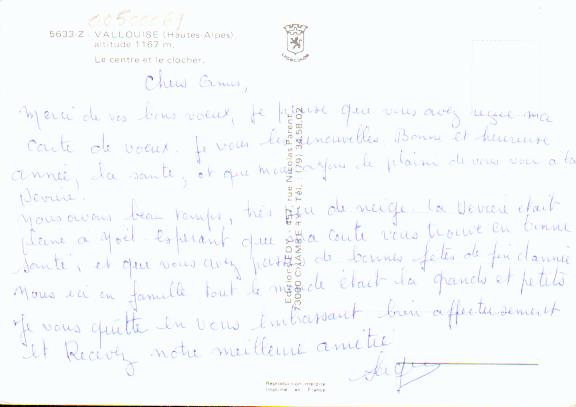 00500069
5633-Z - VALLOUISE (Hautes-Alpes),
altitude 1167 m.
Le centre et le clocher.
LYON COLOR
Chers amis,
Merci de vos bons voeux, je pense que vous avez reçue ma
carte de voeux. Je vous les renouvelles. Bonne et heureuse
année, la santé, et que nous ayons le plaisir de vous voir a la
nous avons beau temps, très peu de neige. la était
pleine a Noël Esperant que ma carte vous trouve en bonne
santé, et que vous avez passé de bonnes fêtes de fin d'année
Nous ici en famille tout le monde était la grands et petits
Je vous quitte en vous embrassant bien affectueusement
et Recevez notre meilleure amitié
Edition 457, rue Nicolas Parent
73000 CHAMBERY - Tél. (79) 34.58.02
Reproduction interdite
Imprimé en France